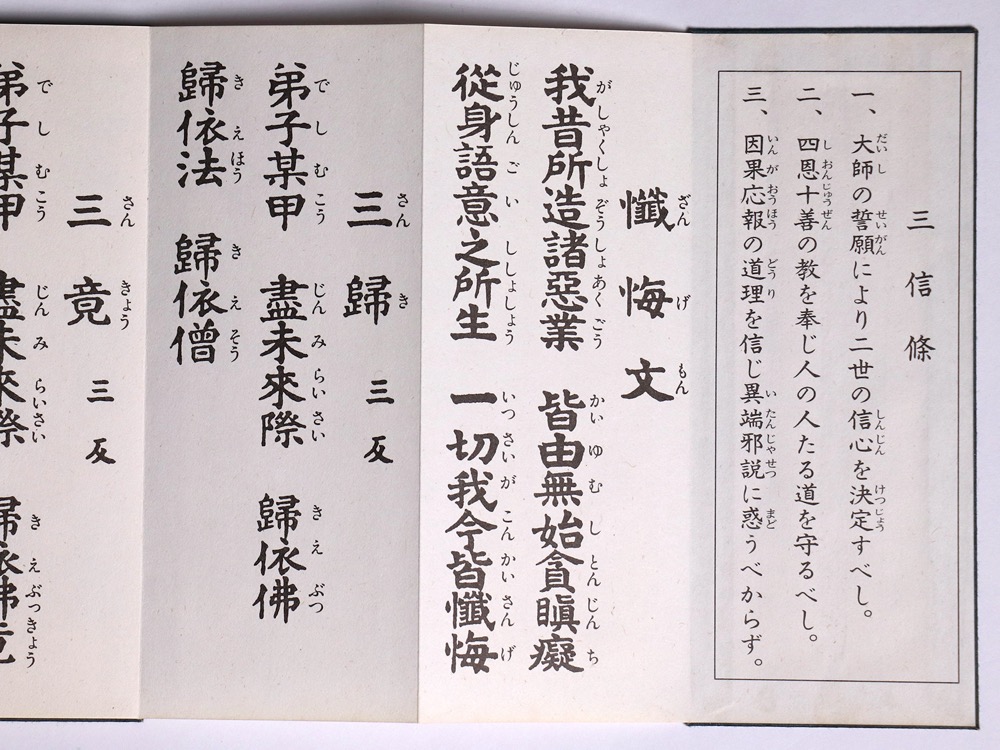 三信條
一、大師の誓願により二世の信心を決定すべし。
二、四恩十善の教を奉じ人の人たる道を守るべし。
三、因果応報の道理を信じ異端邪説に惑うべからず。
懺悔文
我昔所造諸惡業 皆由無始貪瞋癡
從身語意之所生 一切我今皆懺悔
三歸 三反
弟子某甲 盡未來際 歸依佛
歸依法 歸依僧
三竟 三反
弟子某甲 盡未來際 歸依佛竟